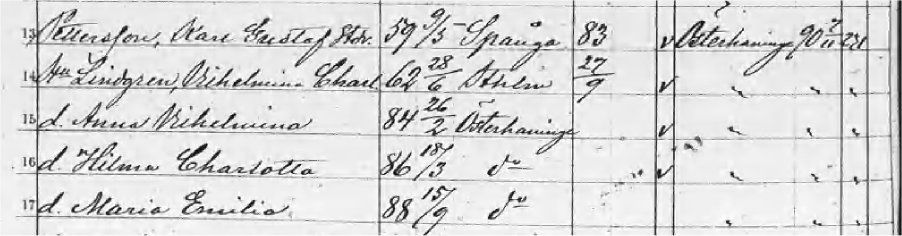 13 Pettersson, Karl Gustaf 59 9/5 Spånga 83 v Österhaninge 90
14 Hu Lindgren, Vilhelmina Charl. 62 28/6 Sthlm 27/9 v " " "
15 d. Anna Vilhelmina 84 26/2 Österhaninge v " " "
16 d. Hilma Charlotta 86 18/3 do v " " "
17 d. Maria Emilia 88 15/9 do " " "